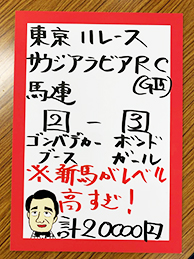 東京11レース
サウジアラビアRC
(GⅢ)
馬連
2 - 3
ゴンバデカーブース
ボンドガール
※新馬がレベル
高すむ!
計20000円